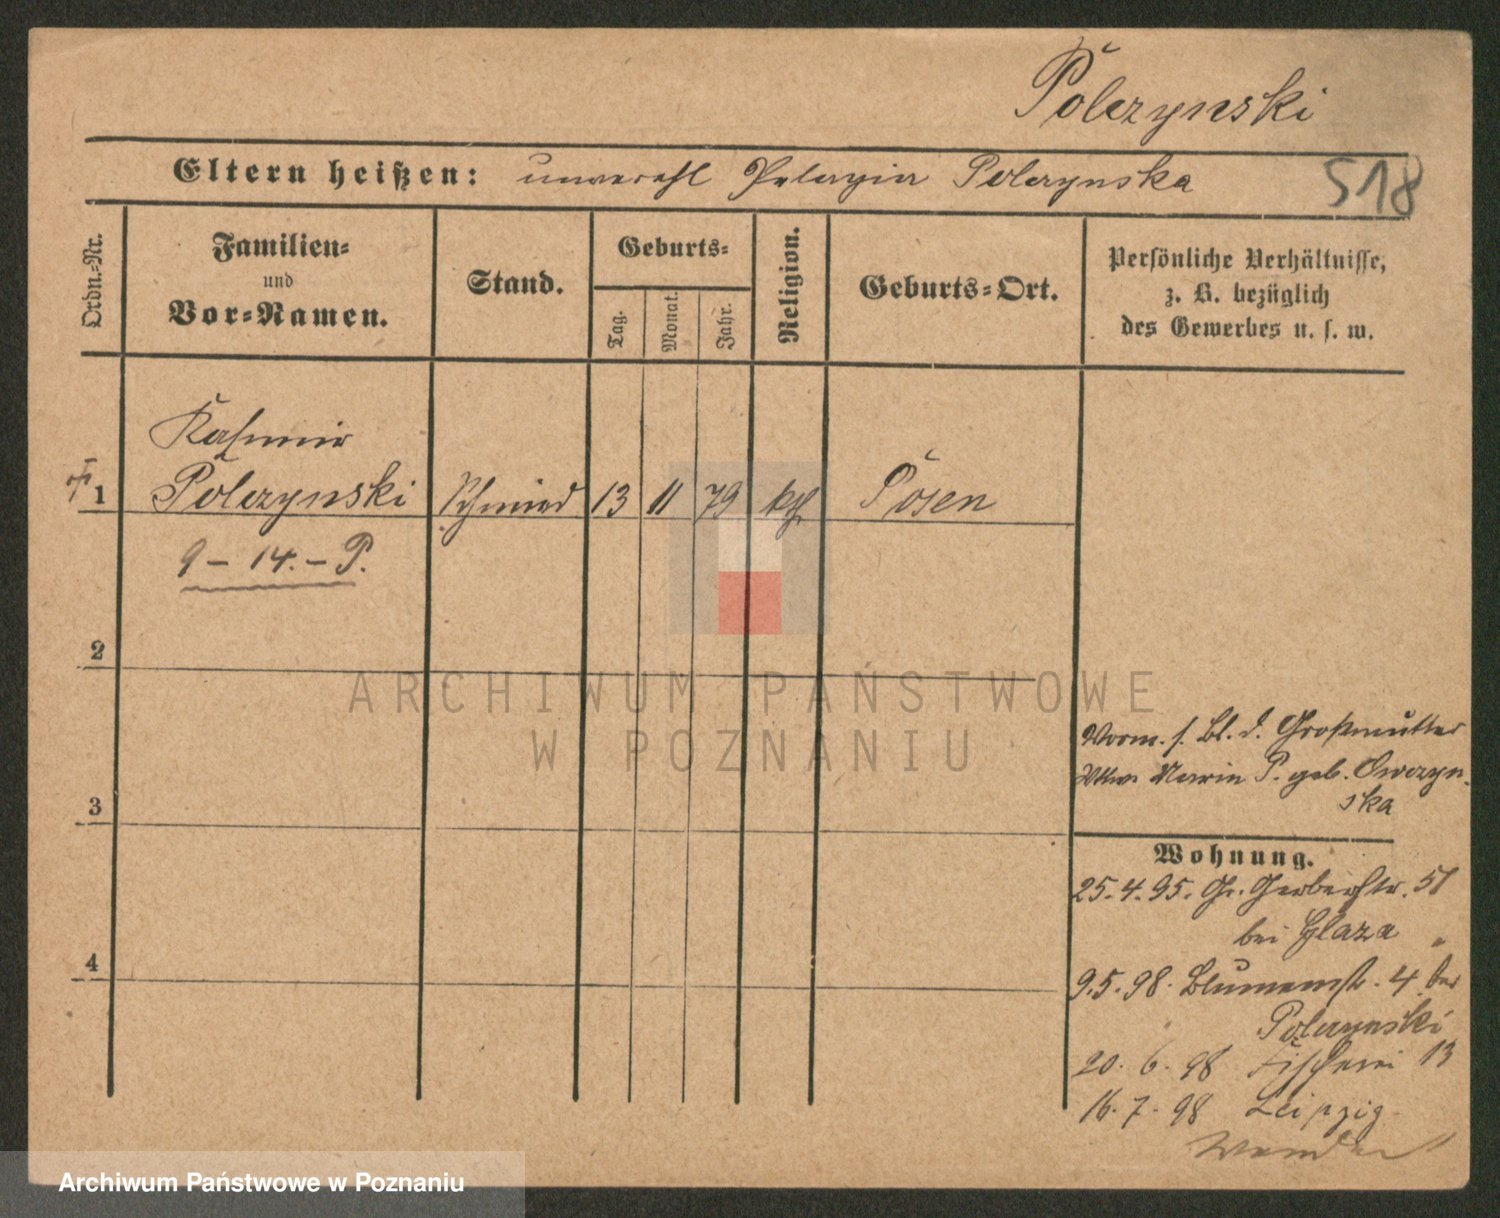 Polczynski
Eltern heißen: unverehl Pelagia Polczynska
518
Ordn.-Nr.
Familien-
und
Vor-Namen.
Stand.
Geburts-
Tag.
Monat.
Jahr.
Religion.
Geburts-Ort.
Persönliche Verhältnisse,
z. B. bezüglich
des Gewerbes u. s. w.
Kasimir
1 Polczynski Schmied 13 11 79 kth Posen
9 – 14. – P.
2
3
4
Vorm. s. Bl. d. Großmutter
Wwe Marie P. geb. Owczyn-
ska
Wohnung.
25.4.95. Gr. Gerberstr. 51
bei Glaza
9.5.98. Blumenstr. 4 bei
Polczynski
20. 6. 98 Fischerei 13
16. 7. 98 Leipzig
Wenden
ARCHIWUM PAŃSTWOWE
W POZNANIU
Archiwum Państwowe w Poznaniu